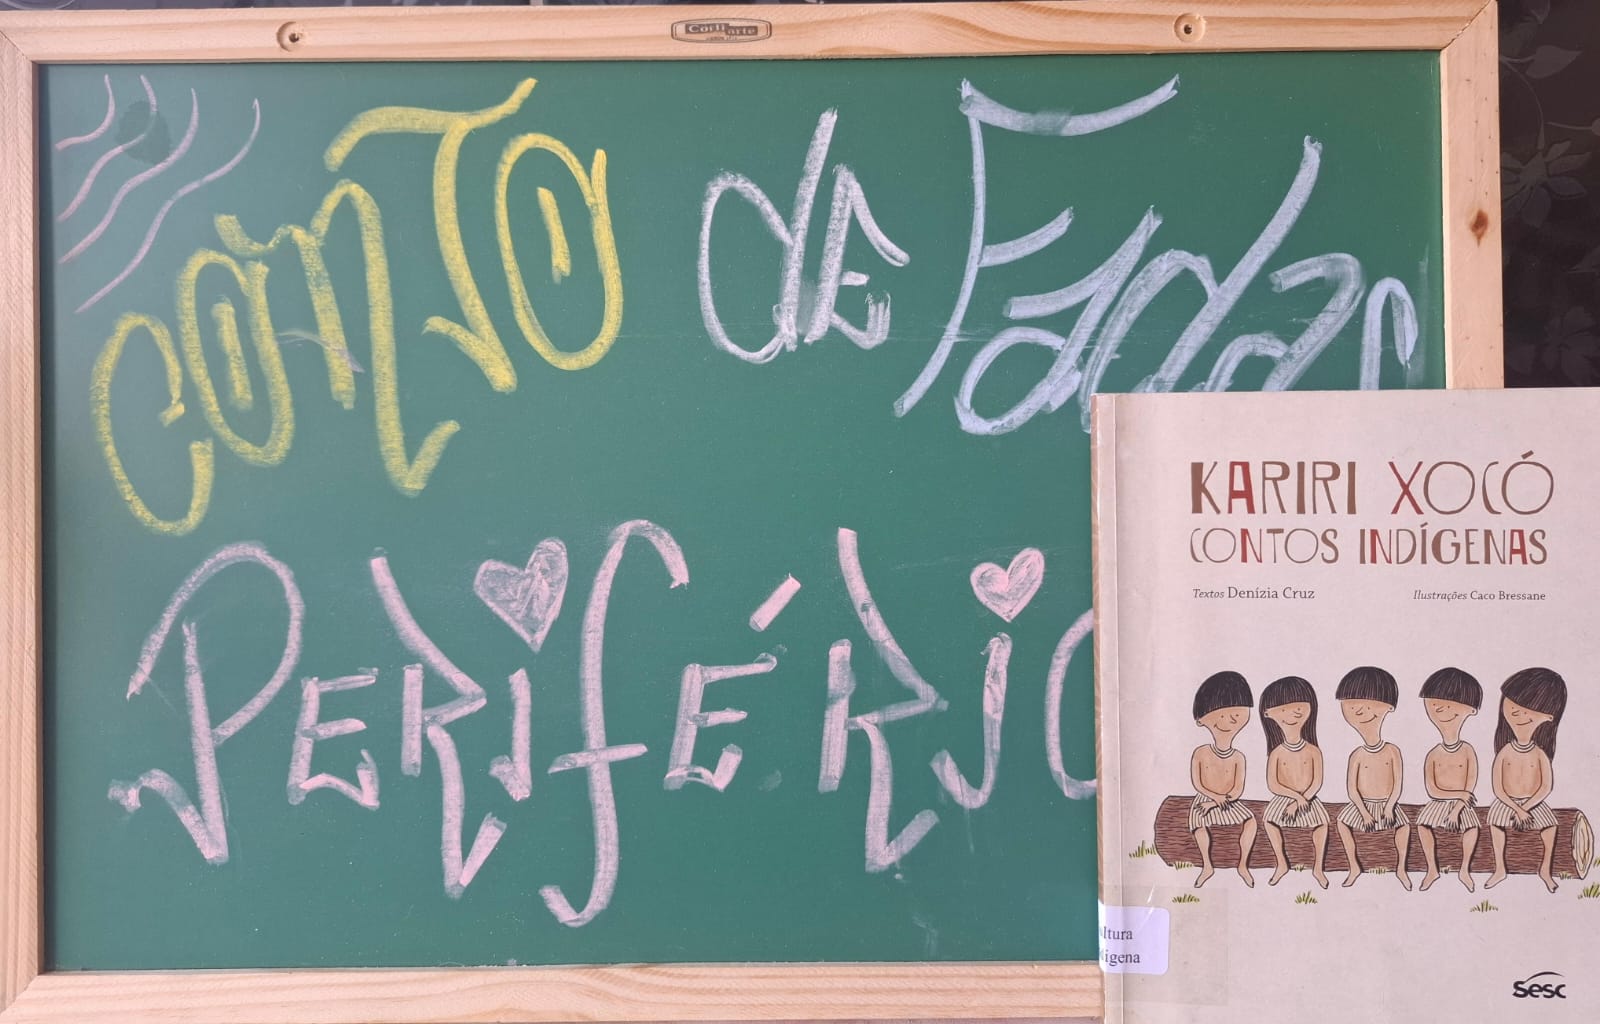 CONTO de Fadas
PERIFÉRIO
KARIRI XOCÓ
CONTOS INDÍGENAS
Textos Denízia Cruz
Ilustrações Caco Bressane
ltura
ígena
Sesc